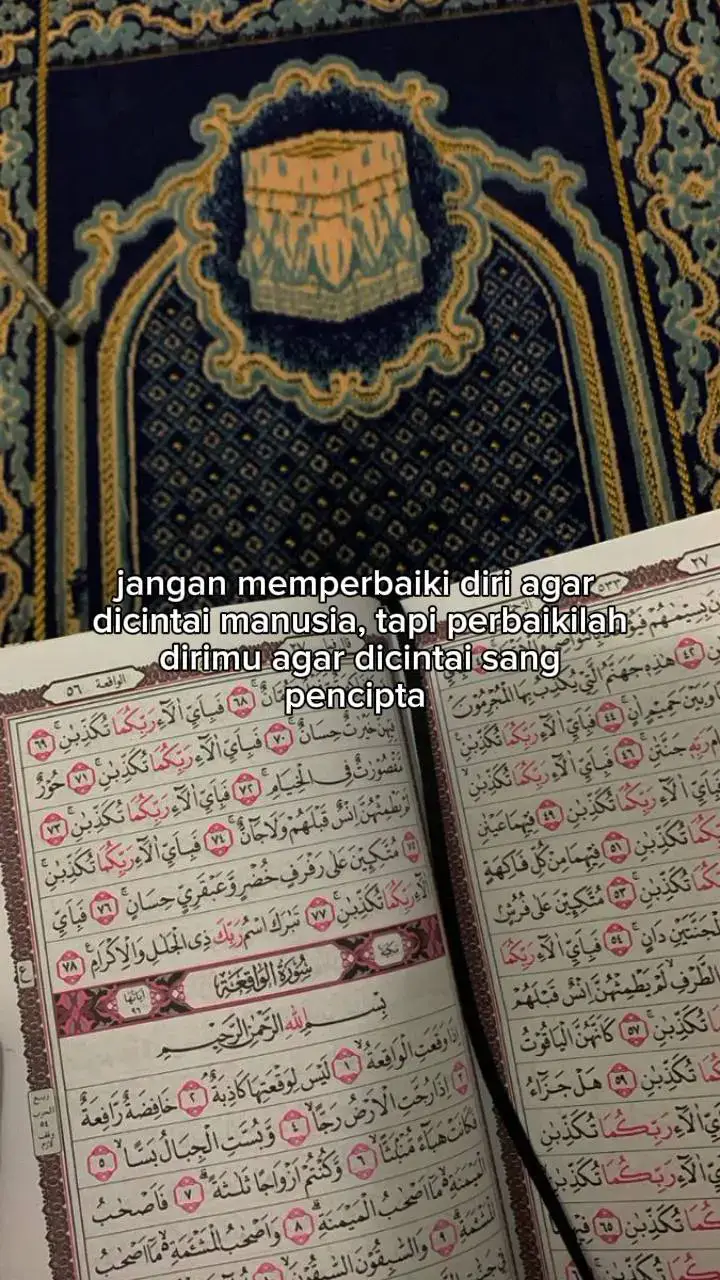 jangan memperbaiki diri agar
dicintai manusia, tapi perbaikilah
dirimu agar dicintai sang
pencipta
٢٧
الواقعة ٥٦
حِسَانٌ ۚ ٧٠ فَبِاَيِّ اٰلَاۤءِ رَبِّكُمَا تُكَذِّبٰنِۚ ٧١ حُوْرٌ
مَّقْصُوْرٰتٌ فِى الْخِيَامِۚ ٧٢ فَبِاَيِّ اٰلَاۤءِ رَبِّكُمَا تُكَذِّبٰنِۚ ٧٣
لَمْ يَطْمِثْهُنَّ اِنْسٌ قَبْلَهُمْ وَلَا جَاۤنٌّۚ ٧٤ فَبِاَيِّ اٰلَاۤءِ رَبِّكُمَا تُكَذِّبٰنِۚ
٧٥ مُتَّكِـِٕيْنَ عَلٰى رَفْرَفٍ خُضْرٍ وَّعَبْقَرِيٍّ حِسَانٍۚ ٧٦ فَبِاَيِّ
اٰلَاۤءِ رَبِّكُمَا تُكَذِّبٰنِۚ ٧٧ تَبٰرَكَ اسْمُ رَبِّكَ ذِى الْجَلٰلِ وَالْاِكْرَامِ ࣖ ٧٨
سُوْرَةُ الْوَاقِعَةِ
اٰيَاتُهَا ٩٦
بِسْمِ اللّٰهِ الرَّحْمٰنِ الرَّحِيْمِ
اِذَا وَقَعَتِ الْوَاقِعَةُۙ ١ لَيْسَ لِوَقْعَتِهَا كَاذِبَةٌۘ ٢ خَافِضَةٌ رَّافِعَةٌ
٣ اِذَا رُجَّتِ الْاَرْضُ رَجًّاۙ ٤ وَّبُسَّتِ الْجِبَالُ بَسًّاۙ ٥
فَكَانَتْ هَبَاۤءً مُّنْۢبَثًّاۙ ٦ وَّكُنْتُمْ اَزْوَاجًا ثَلٰثَةًۗ ٧ فَاَصْحٰبُ
الْمَيْمَنَةِ ەۙ مَآ اَصْحٰبُ الْمَيْمَنَةِۗ ٨ وَاَصْحٰبُ الْمَشْـَٔمَةِ ەۙ مَآ اَصْحٰبُ
الْمَشْـَٔمَةِۗ ٩ وَالسّٰبِقُوْنَ السّٰبِقُوْنَ
هٰذِهٖ جَهَنَّمُ الَّتِيْ يُكَذِّبُ بِهَا الْمُجْرِمُوْنَ
وَبَيْنَ حَمِيْمٍ اٰنٍۚ ٤٤ فَبِاَيِّ اٰلَاۤءِ رَبِّكُمَا تُكَذِّبٰنِ
رَبِّهٖ جَنَّتٰنِۚ ٤٦ فَبِاَيِّ اٰلَاۤءِ رَبِّكُمَا تُكَذِّبٰنِۙ
اٰلَاۤءِ رَبِّكُمَا تُكَذِّبٰنِ ٤٩ فِيْهِمَا عَيْنٰنِ
رَبِّكُمَا تُكَذِّبٰنِ ٥١ فِيْهِمَا مِنْ كُلِّ فَاكِهَةٍ
تُكَذِّبٰنِۚ ٥٣ مُتَّكِـِٕيْنَ عَلٰى فُرُشٍ
الْجَنَّتَيْنِ دَانٍۚ ٥٤ فَبِاَيِّ اٰلَاۤءِ رَبِّكُمَا
الطَّرْفِۙ لَمْ يَطْمِثْهُنَّ اِنْسٌ قَبْلَهُمْ
تُكَذِّبٰنِۚ ٥٧ كَاَنَّهُنَّ الْيَاقُوْتُ
تُكَذِّبٰنِ ٥٩ هَلْ جَزَاۤءُ
اٰلَاۤءِ رَبِّكُمَا تُكَذِّبٰنِ
اٰلَاۤءِ رَبِّكُمَا تُكَذِّبٰنِ
تُكَذِّبٰنِۚ ٦٥
رَبِّكُمَا تُكَذِّبٰنِ